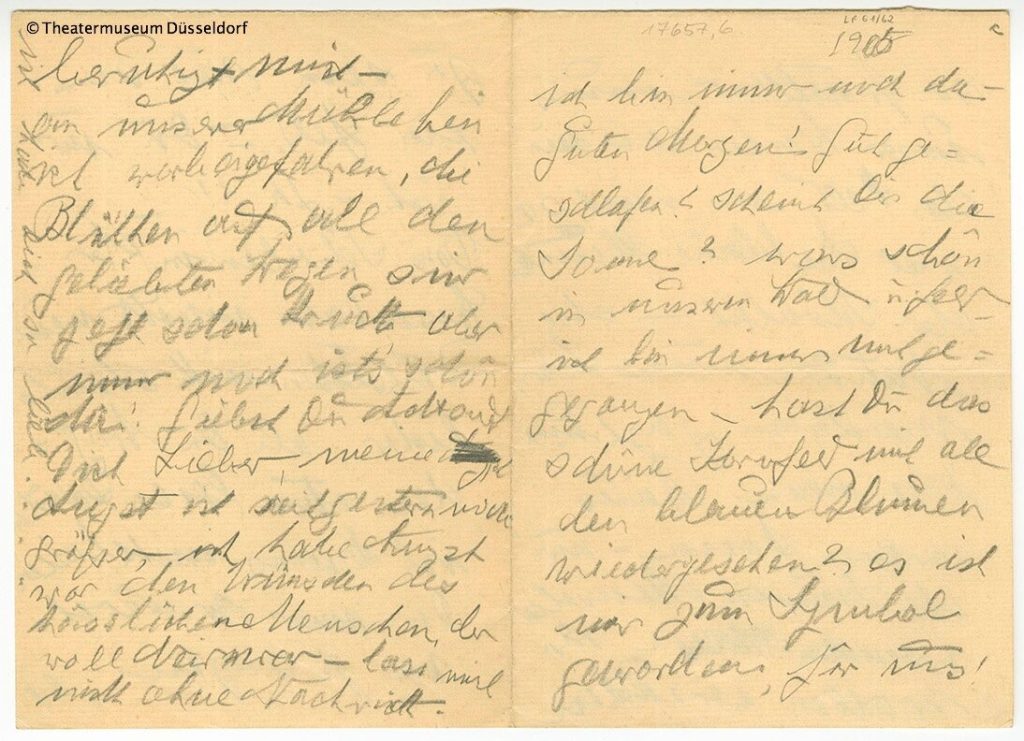 © Theatermuseum Düsseldorf
beruhigt mich –
an unserer Mühle bin
ich vorbeigefahren, die
Blüthen auf all den
geliebten Wegen sind
jetzt schon Frucht, aber
immer noch ist's schön
da! Giebst Du Acht auf
Dich Lieber, meine
Angst ist seit gestern viel
größer, ich habe Angst
vor den Wünschen des
hässlichen Menschen, der
voll Neid war – lass mich
nicht ohne Nachricht.
ich habe dich so lieb . . .
17657,6
LP 61/62
1905
ich bin immer noch da –
Guten Morgen! Gut ge=
schlafen? scheint Dir die
Sonne? wars schön
in unserm Wald
ich bin immer mitge=
gegangen – hast Du das
schöne Kornfeld mit all
den blauen Blumen
wiedergesehen? es ist
mir zum Symbol
geworden, für uns!